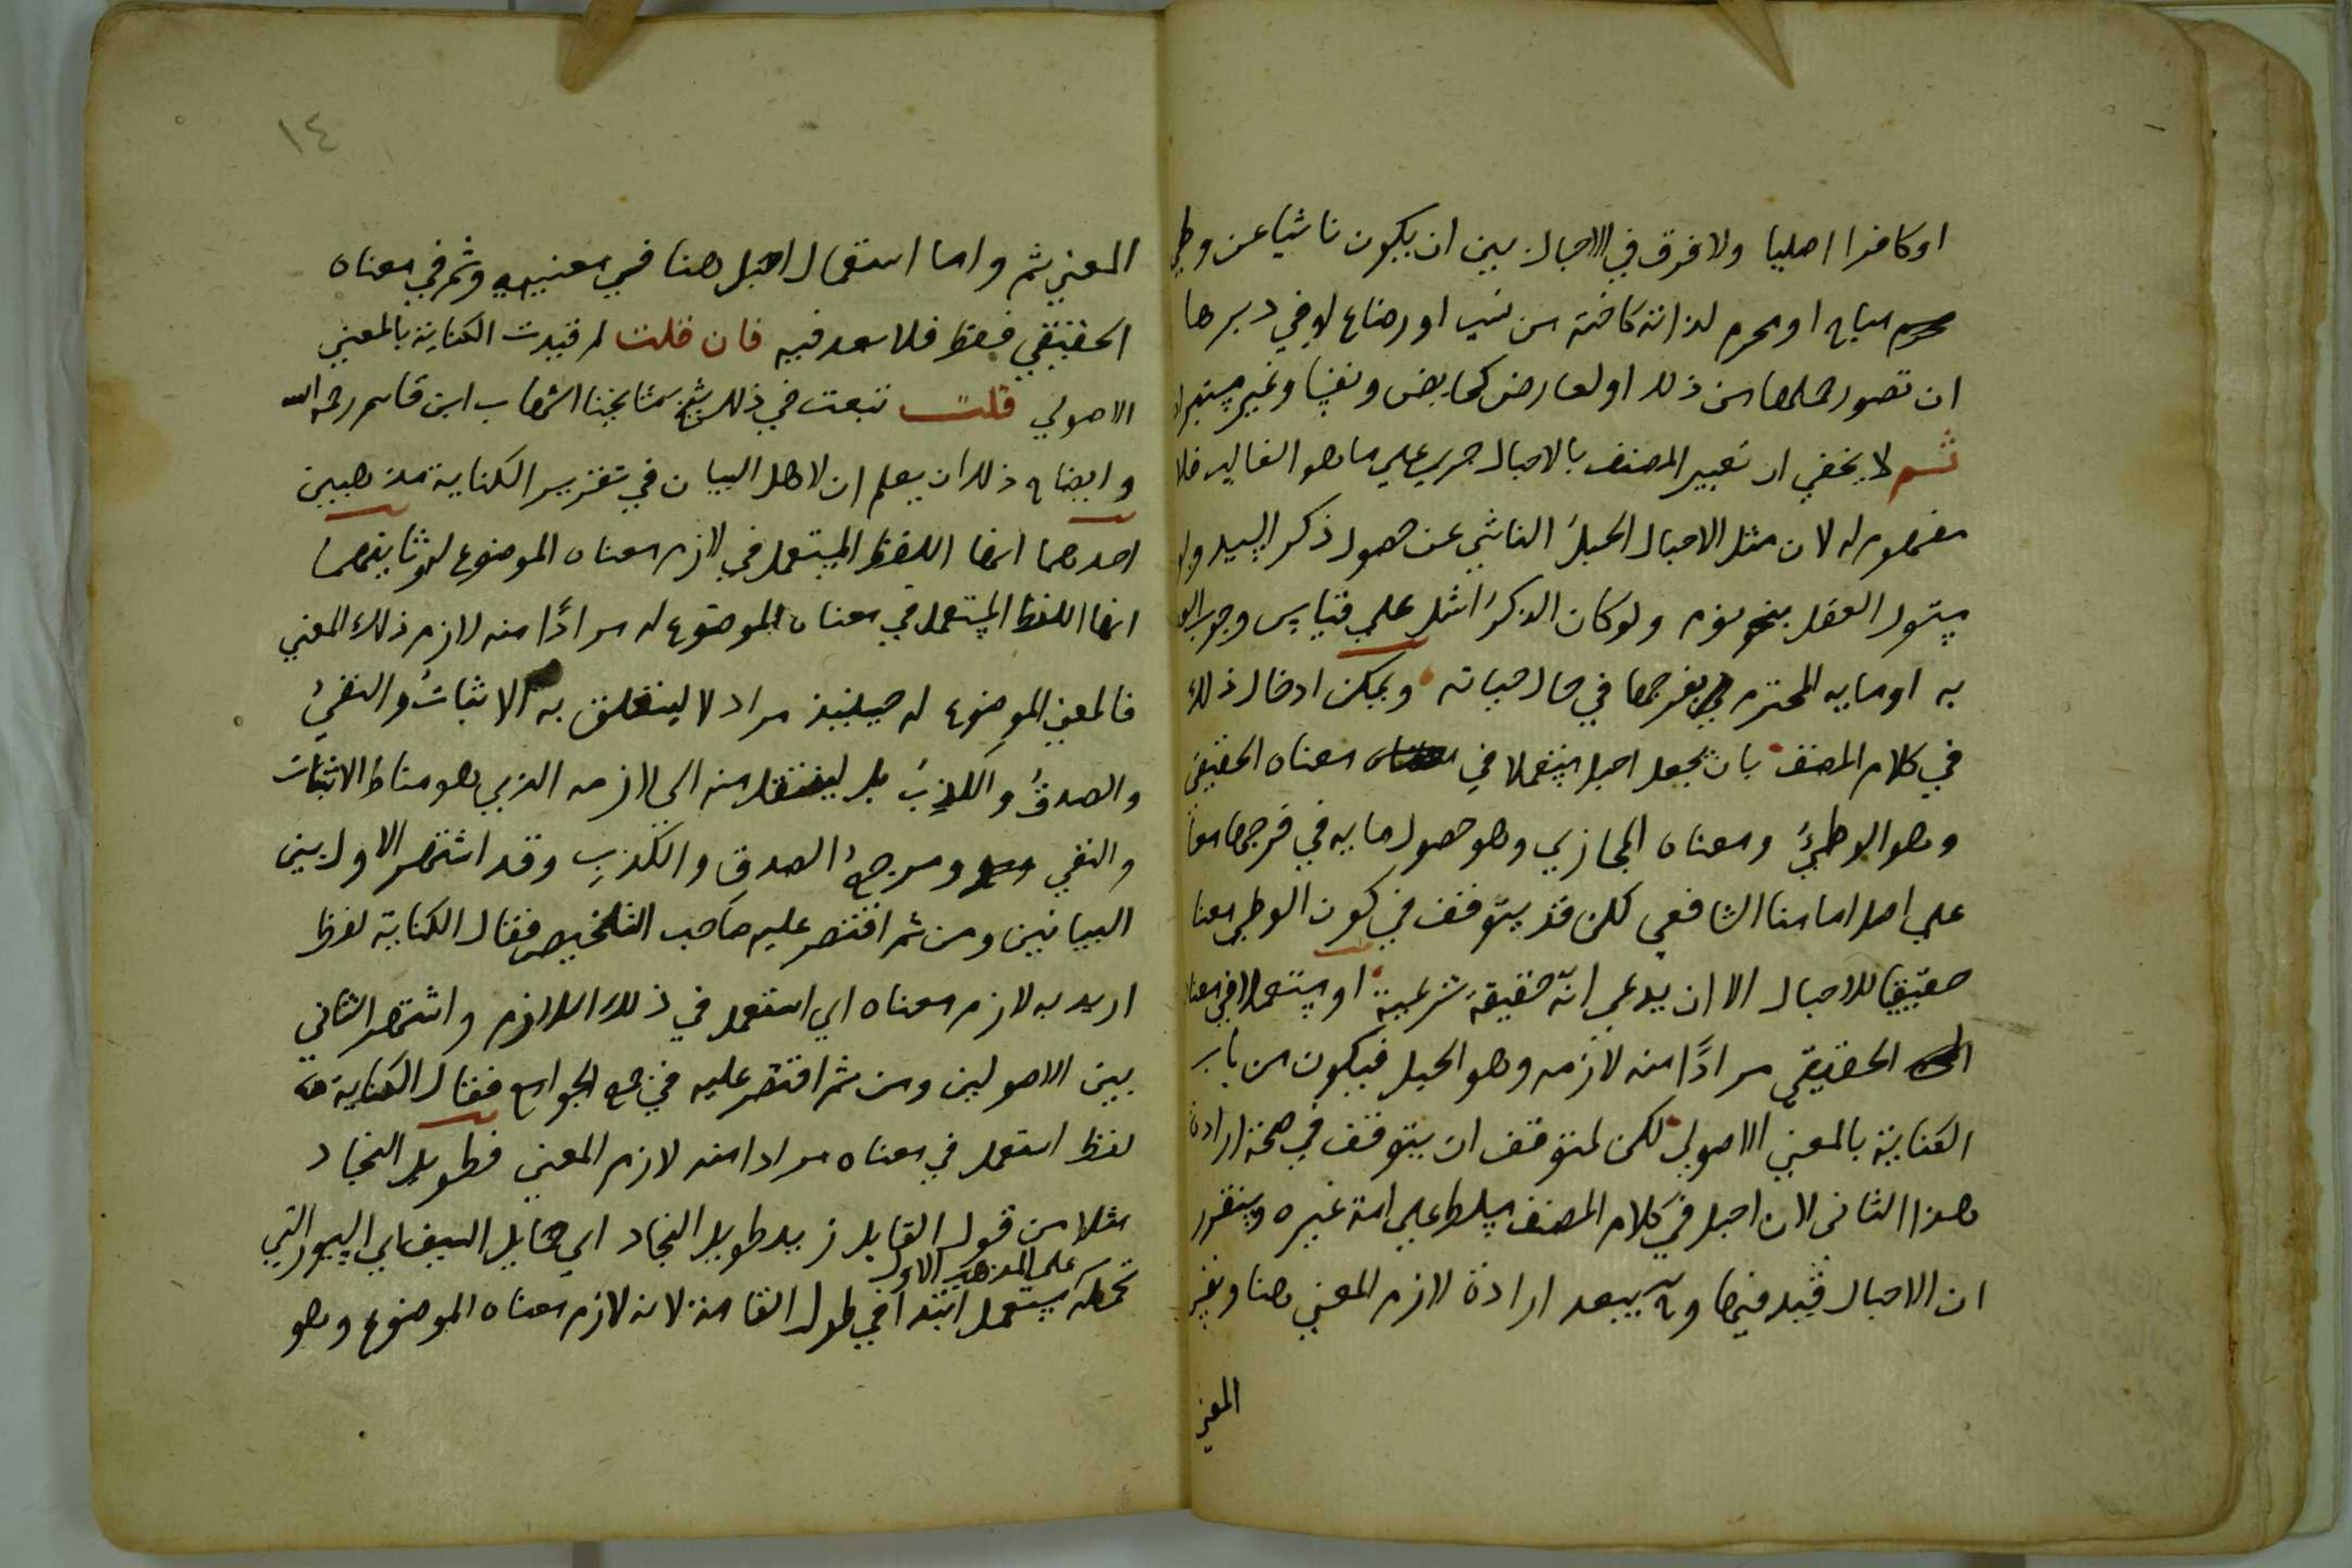 او كافرا اصليا ولا فرق في الاحبال بين ان يكون ناشيا عن وطي
مباح او محرم لذاته كاخته من نسب او رضاع او في دبرها
ان تصور حملها من ذلك او لعارض كحايض ونفسا وغير مستبراة
ثم لا يخفي ان تعبير المصنف بالاحبال جري علي ما هو الغالب فلا
مفهوم له لان مثل الاحبال الحبل الناشي عن حصول ذكر السيد ولو
ولو كان الذكر اشل علي قياس وجوب
به او مايه المحترم في فرجها في حال حياته ويمكن ادخال ذلك
في كلام المصنف بان يجعل احبل مستعملا في معناه الحقيقي
وهو الوطيُ ومعناه المجازي وهو حصول مايه في فرجها معا
علي اصل امامنا الشافعي لكن قد يتوقف في كون الوطي معنا
حقيقيا للاحبال الا ان يدعي انه حقيقة شرعية او مستعملا في معناه
الحقيقي مرادًا منه لازمه وهو الحبل فيكون من باب
الكناية بالمعني الاصولي لكن لمتوقف ان يتوقف في صحة ارادة
هذا الثاني لان احبل في كلام المصنف مسلط علي امة غيره وسيتقرر
ان الاحبال قيد فيها وح يبعد ارادة لازم المعني هنا ونفس
المعني
١٤
المعني ثم واما استعمال احبل هنا في معنييه وثم في معناه
الحقيقي فقط فلا بعد فيه فان قلت لم قيدت الكناية بالمعني
الاصولي قلت تبعت في ذلك شيخ مشايخنا الشهاب ابن قاسم رحمه الله
وايضاح ذلك ان يعلم ان لاهل البيان في تقرير الكناية مذهبين
احدهما انها اللفظ المستعمل في لازم معناه الموضوع له وثانيهما
انها اللفظ المستعمل في معناه الموضوع له مرادًا منه لازم ذلك المعني
فالمعني الموضوع له حينيذ مراد لا ليتعلق به الاثباتُ والنفيُ
والصدقُ والكذبُ بل لينتقل منه الي لازمه الذي هو مناط الاثبات
والنفي ومرجع الصدق والكذب وقد اشتهر الاول بين
البيانيين ومن ثم اقتصر عليه صاحب التلخيص فقال الكناية لفظ
اريد به لازم معناه اي استعمل في ذلك اللازم واشتهر الثاني
بين الاصوليين ومن ثم اقتصر عليه في جمع الجوامع فقال الكناية
لفظ استعمل في معناه مرادا منه لازم المعني فطويل النجاد
مثلا من قول القايل زيد طويل النجاد اي حمايل السيف اي السيور التي
على المذهب الاول
تحمله يستعمل ابتدا في طول القامة لانه لازم معناه الموضوع وهو